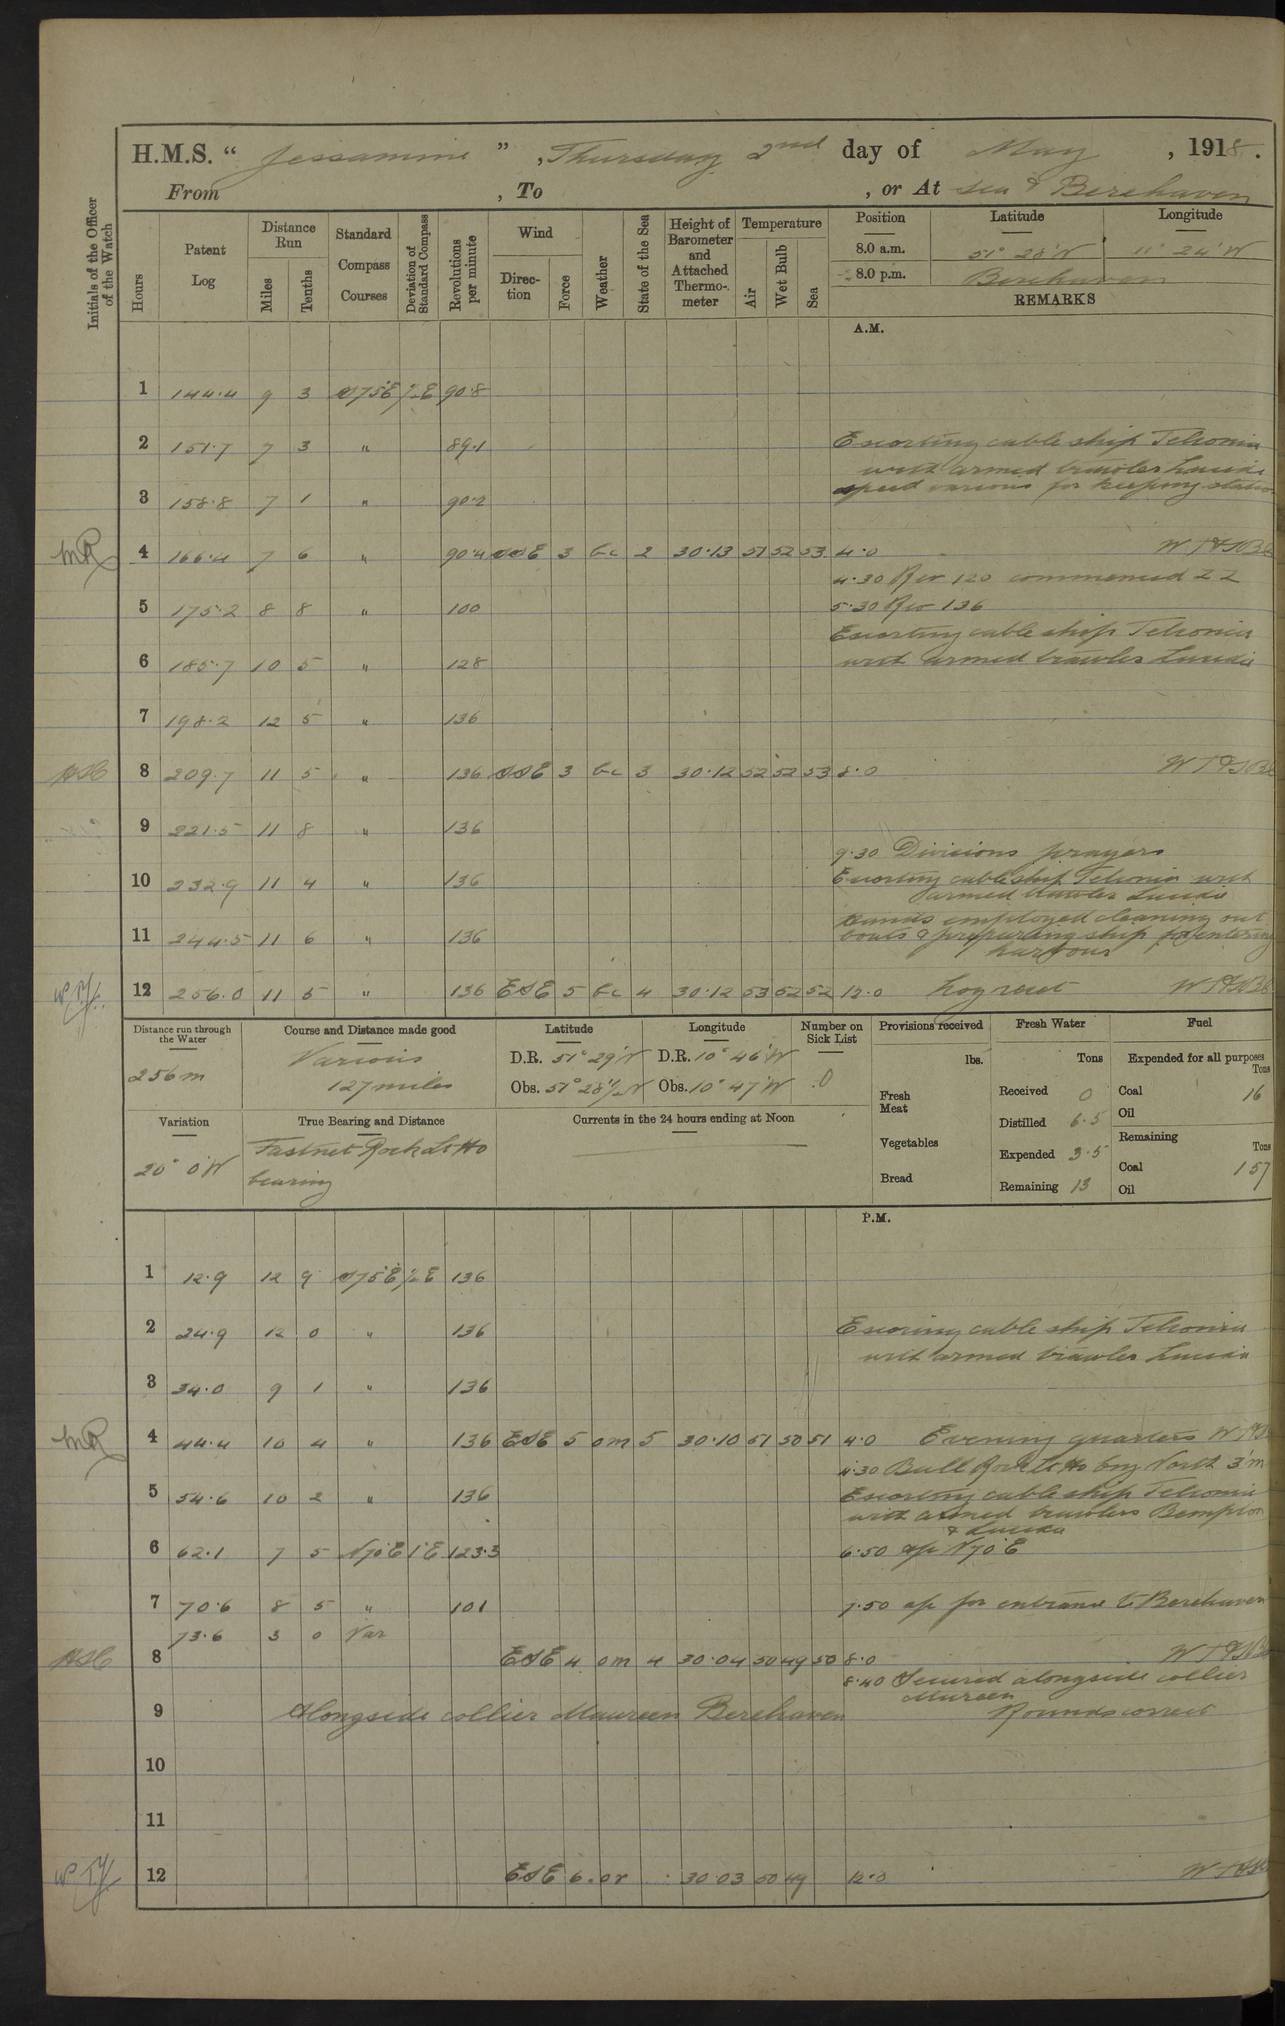 H.M.S. “ Jessamine ” , Thursday 2nd day of May , 1918.
From , To , or At sea & Berehaven
Initials of the Officer of the Watch
Hours
Patent Log
Distance Run
Miles
Tenths
Standard Compass Courses
Deviation of Standard Compass
Revolutions per minute
Wind
Direc-tion
Force
Weather
State of the Sea
Height of Barometer and Attached Thermo-meter
Temperature
Air
Wet Bulb
Sea
Position Latitude Longitude
8.0 a.m. 51° 28' N 11° 24' W
8.0 p.m. Berehaven
REMARKS
A.M.
1 144.4 9 3 S75°E ½E 90.8
2 151.7 7 3 " 89.1 Escorting cable ship Telconia
with armed trawler Lucida
3 158.8 7 1 " 90.2 speed various for keeping station
4 166.4 7 6 " 90.4 SSE 3 bc 2 30.13 51 52 53 4.0
4.30 Rev 120 commenced ZZ
5 175.2 8 8 " 100 5.30 Rev 136
Escorting cable ship Telconia
6 185.7 10 5 " 128 with armed trawler Lucida
7 198.2 12 5 " 136
8 209.7 11 5 " 136 SSE 3 bc 3 30.12 52 52 53 8.0
9 221.5 11 8 " 136
9.30 Divisions prayers
10 232.9 11 4 " 136 Escorting cable ship Telconia with
armed trawler Lucida
Hands employed cleaning out
11 244.5 11 6 " 136 boats & preparing ship for entering
harbour
12 256.0 11 5 " 136 ESE 5 bc 4 30.12 53 52 52 12.0 Log reset
Distance run through the Water
256m
Course and Distance made good
Various
127 miles
Latitude
D.R. 51° 29' N
Obs. 51° 28½' N
Longitude
D.R. 10° 46' W
Obs. 10° 47' W
Number on Sick List
0
Provisions received
lbs.
Fresh Meat
Vegetables
Bread
Fresh Water
Tons
Received 0
Distilled 6.5
Expended 3.5
Remaining 13
Fuel
Expended for all purposes
Tons
Coal 16
Oil
Remaining
Tons
Coal 157
Oil
Variation
20° 0' W
True Bearing and Distance
Fastnet Rock Lt Ho
bearing
Currents in the 24 hours ending at Noon
P.M.
1 12.9 12 9 S75°E ½E 136
2 24.9 12 0 " 136 Escoring cable ship Telconia
with armed trawler Lucida
3 34.0 9 1 " 136
4 44.4 10 4 " 136 ESE 5 om 5 30.10 51 50 51 4.0 Evening quarters
4.30 Bull Rock Lt Ho brg North 3'm
5 54.6 10 2 " 136 Escorting cable ship Telconia
with armed trawlers Bempton
& Lucida
6 62.1 7 5 N70°E 1°E 123.3 6.50 a/c N70°E
7 70.6 8 5 " 101 7.50 a/c for entrance to Berehaven
73.6 3 0 Var
8 ESE 4 om 4 30.04 50 49 50 8.0
8.40 Secured alongside collier
Mureen
9 Alongside collier Maureen Berehaven Rounds correct
10
11
12 ESE 6 or 30.03 50 49 12.0